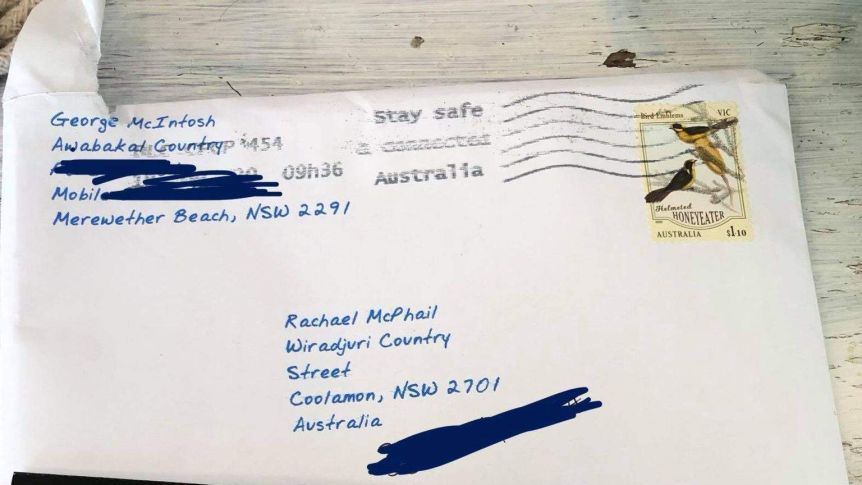 George McIntosh
Awabakal Country
Mobile
Merewether Beach, NSW 2291
454
09h36
Stay safe
& connected
Australia
Bird Emblems VIC
Helmeted
HONEYEATER
AUSTRALIA $1.10
Rachael McPhail
Wiradjuri Country
Street
Coolamon, NSW 2701
Australia